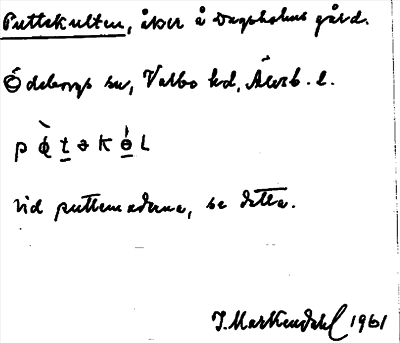 Puttekulten, åker å Dagsholms gård.
Ödeborgs sn, Valbo hd, Älvsb. l.
p ò̵ t̲ ə k ó̵ L
vid puttemaderna, se detta.
J. Markendahl 1961